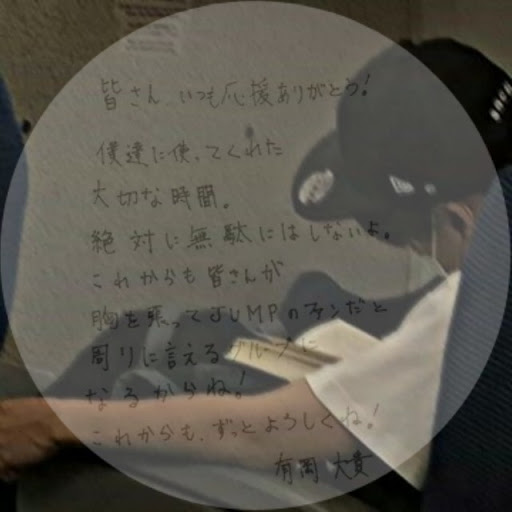 皆さん いつも応援ありがとう!
僕達に使ってくれた
大切な時間。
絶対に無駄にはしないよ。
これからも皆さんが
胸を張ってJUMPのファンだと
周りに言えるグループに
なるからね!
これからも、ずっとよろしくね!
有岡 大貴